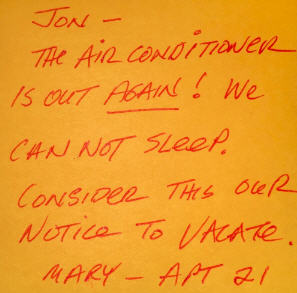 Jon -
The Air Conditioner
is out AGAIN! We
can not sleep.
Consider this our
Notice to Vacate.
Mary - Apt 21